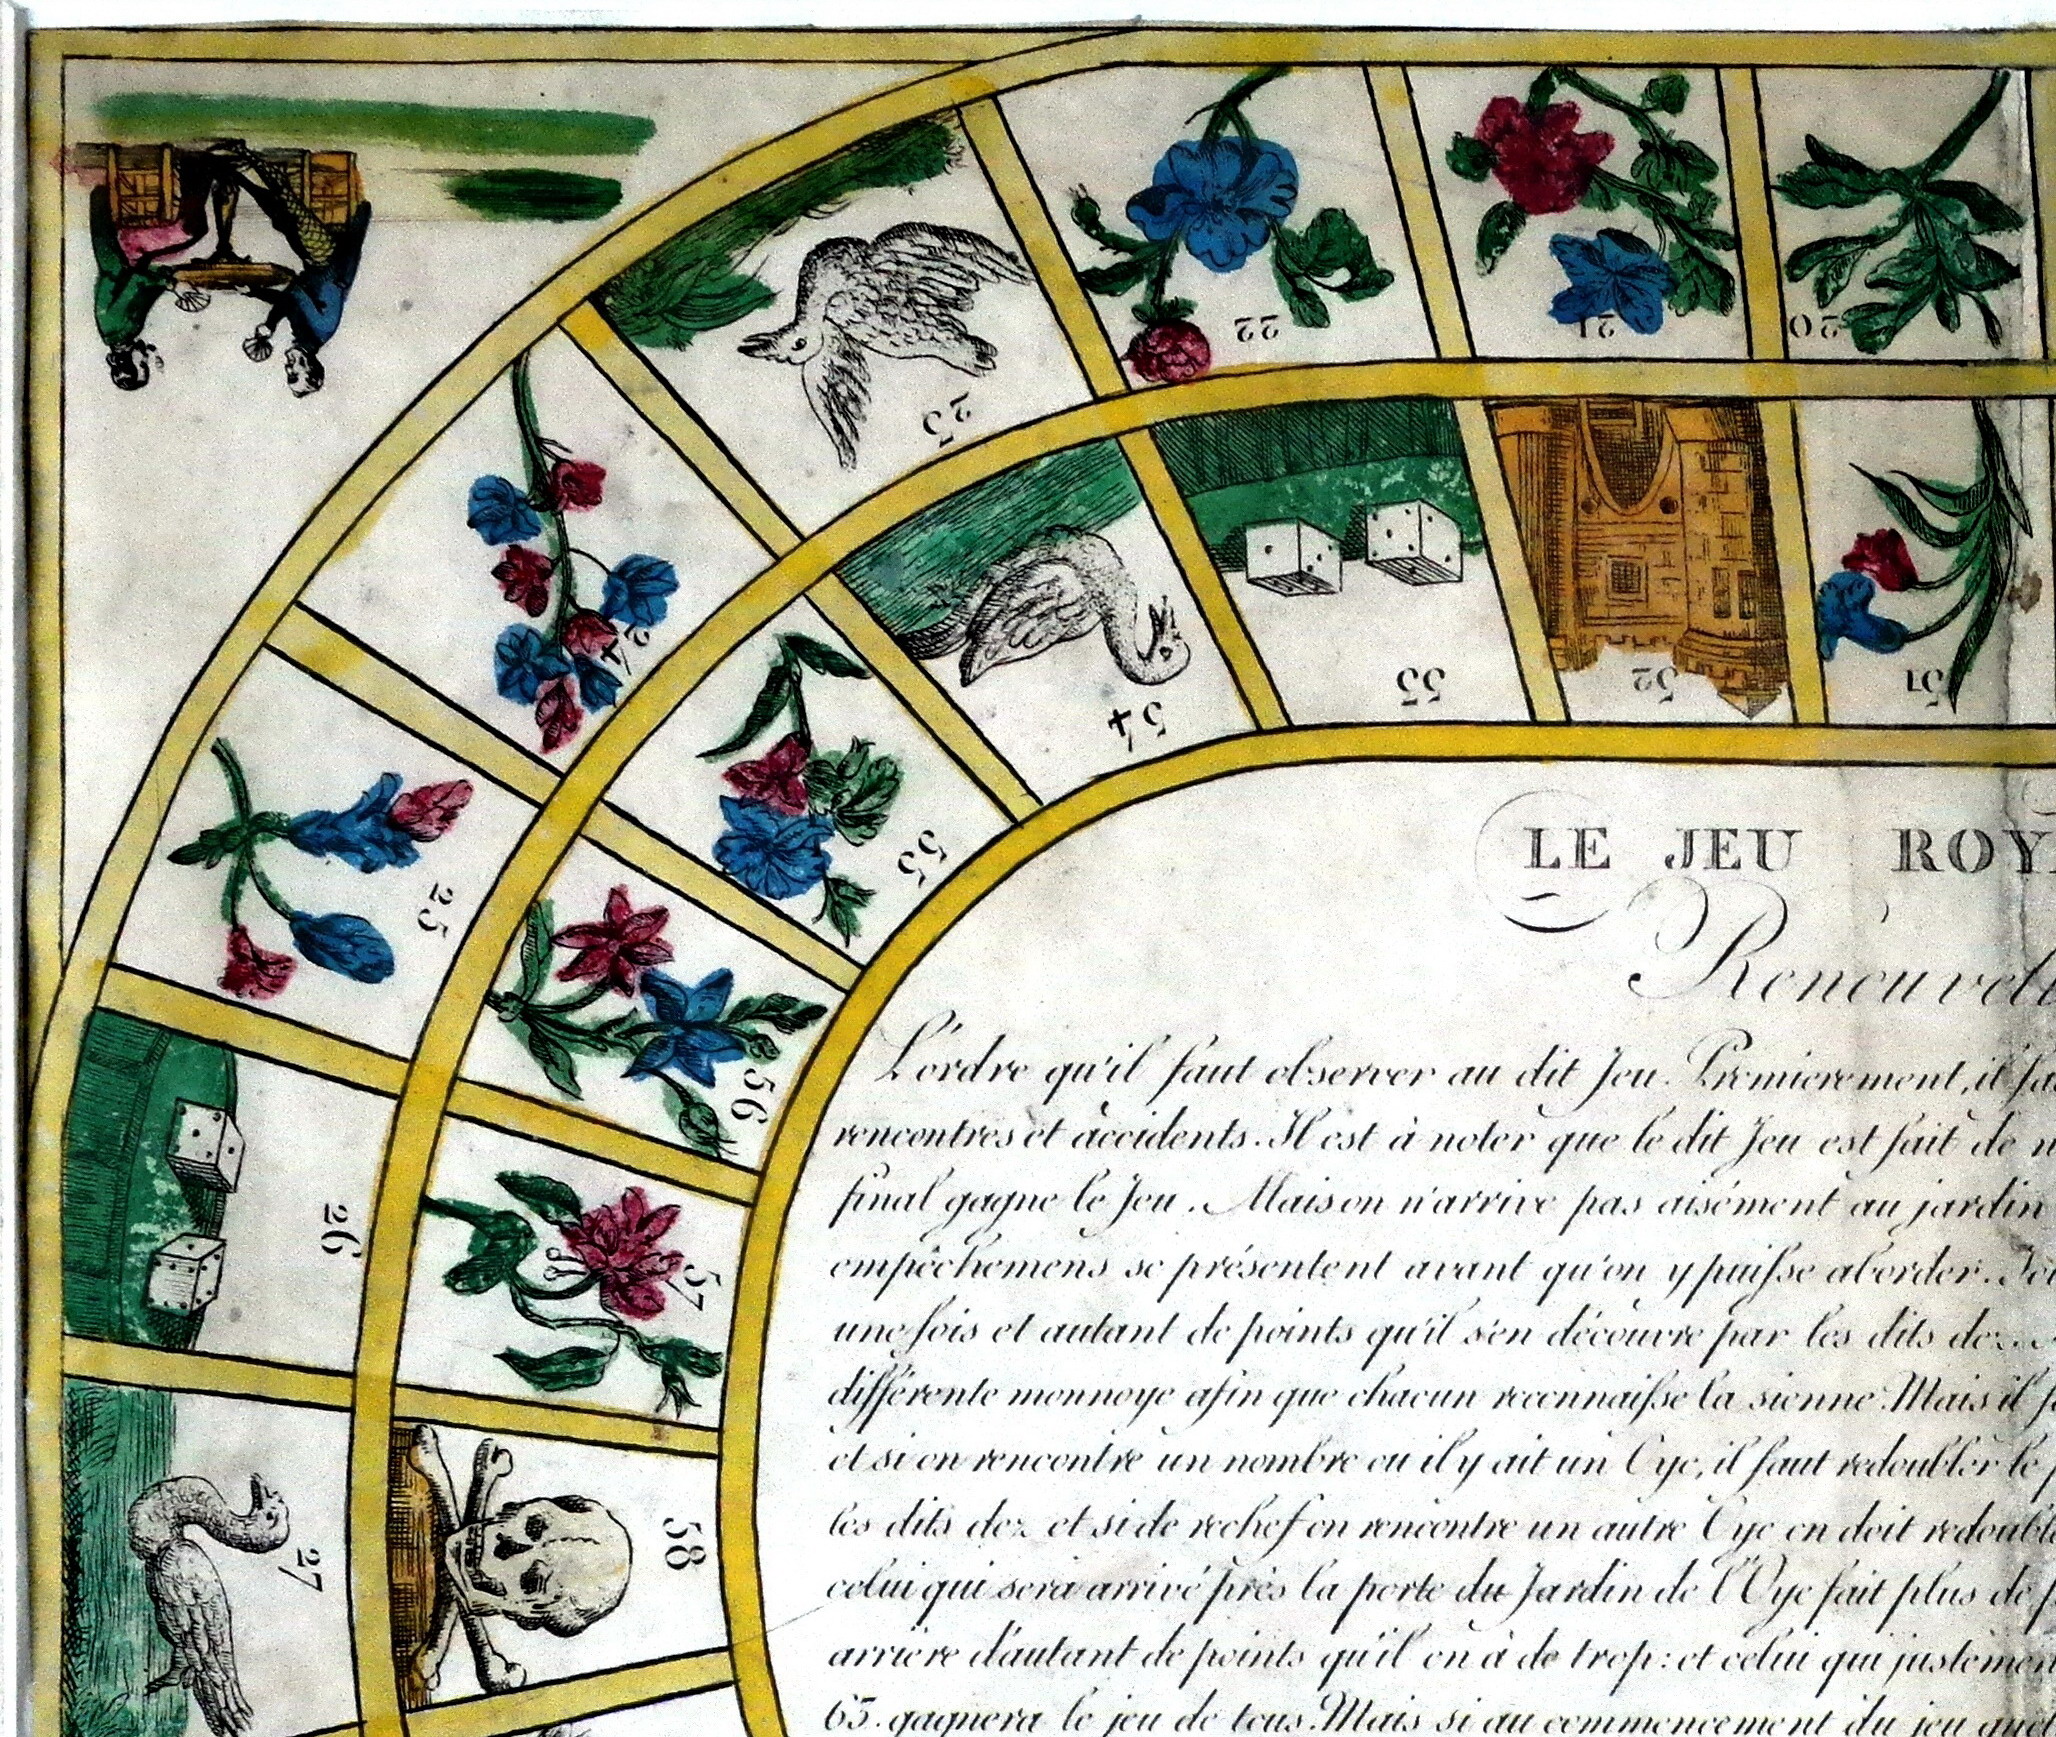 22
21
20
23
24
25
26
27
51
52
53
54
55
56
57
58
LE JEU
Renouvel
L'ordre qu'il faut observer au dit Jeu. Premierement, il
rencontres et accidents. Il est à noter que le dit Jeu est fait de
final gagne le Jeu. Mais on n'arrive pas aisément au jardin
empêchemens se présentent avant qu'on y puisse aborder.
une fois et autant de points qu'il s'en découvre par les dits dez.
différente monnoye afin que chacun reconnaisse la sienne. Mais il
et si on rencontre un nombre ou il y ait un Oye, il faut redoubler le
les dits dez et si de rechef on rencontre un autre Oye on doit
celui qui sera arrivé près la porte du Jardin de l'Oye fait plus de
arrière d'autant de points qu'il en à de trop: et celui qui
63. gagnera le jeu de tous. Mais si au commencement du jeu